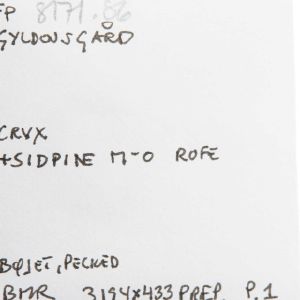 FP 8171.86
GYLDONSGÅRD
CRUX
+SIDPINE M-O ROFE
BØJET, PECKED
BMR 3194x433 PREP. P.1